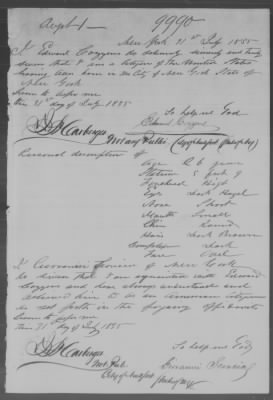 Augt 1
9990
New York 31st July 1855
I Edward Coggens do solemnly sincerely and truly
swear that I am a Citizen of the United States
having been born in the City of New York State of
New York
Sworn to before me
this 31st day of July 1855
So help me God
Notary Public
Personal description of
Age 26 years
Stature 5 feet 9
Forehead High
Eyes Dark Hazel
Nose Short
Mouth Small
Chin Round
Hair Dark Brown
Complexion Dark
Face Oval
I Giovanni of New York
do swear I am acquainted with Edward
Coggens and have always understood and
him to be an American Citizen
as set forth in the foregoing affidavit
Sworn to before me
this 31 day of July 1855
So help me God
Not. Pub.